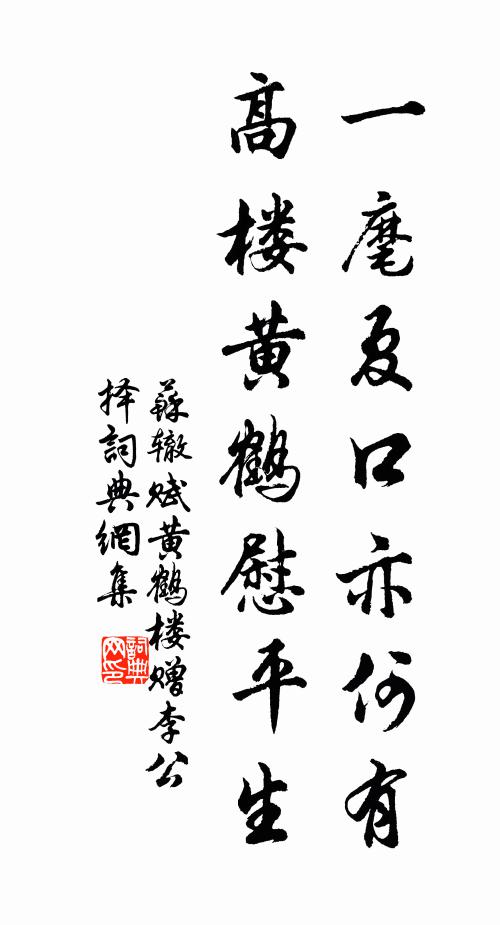 一麾夏口亦何有
高楼黄鹤慰平生
蘇辙赋黄鹤楼赠李公
择詞典網集
詞典
网印